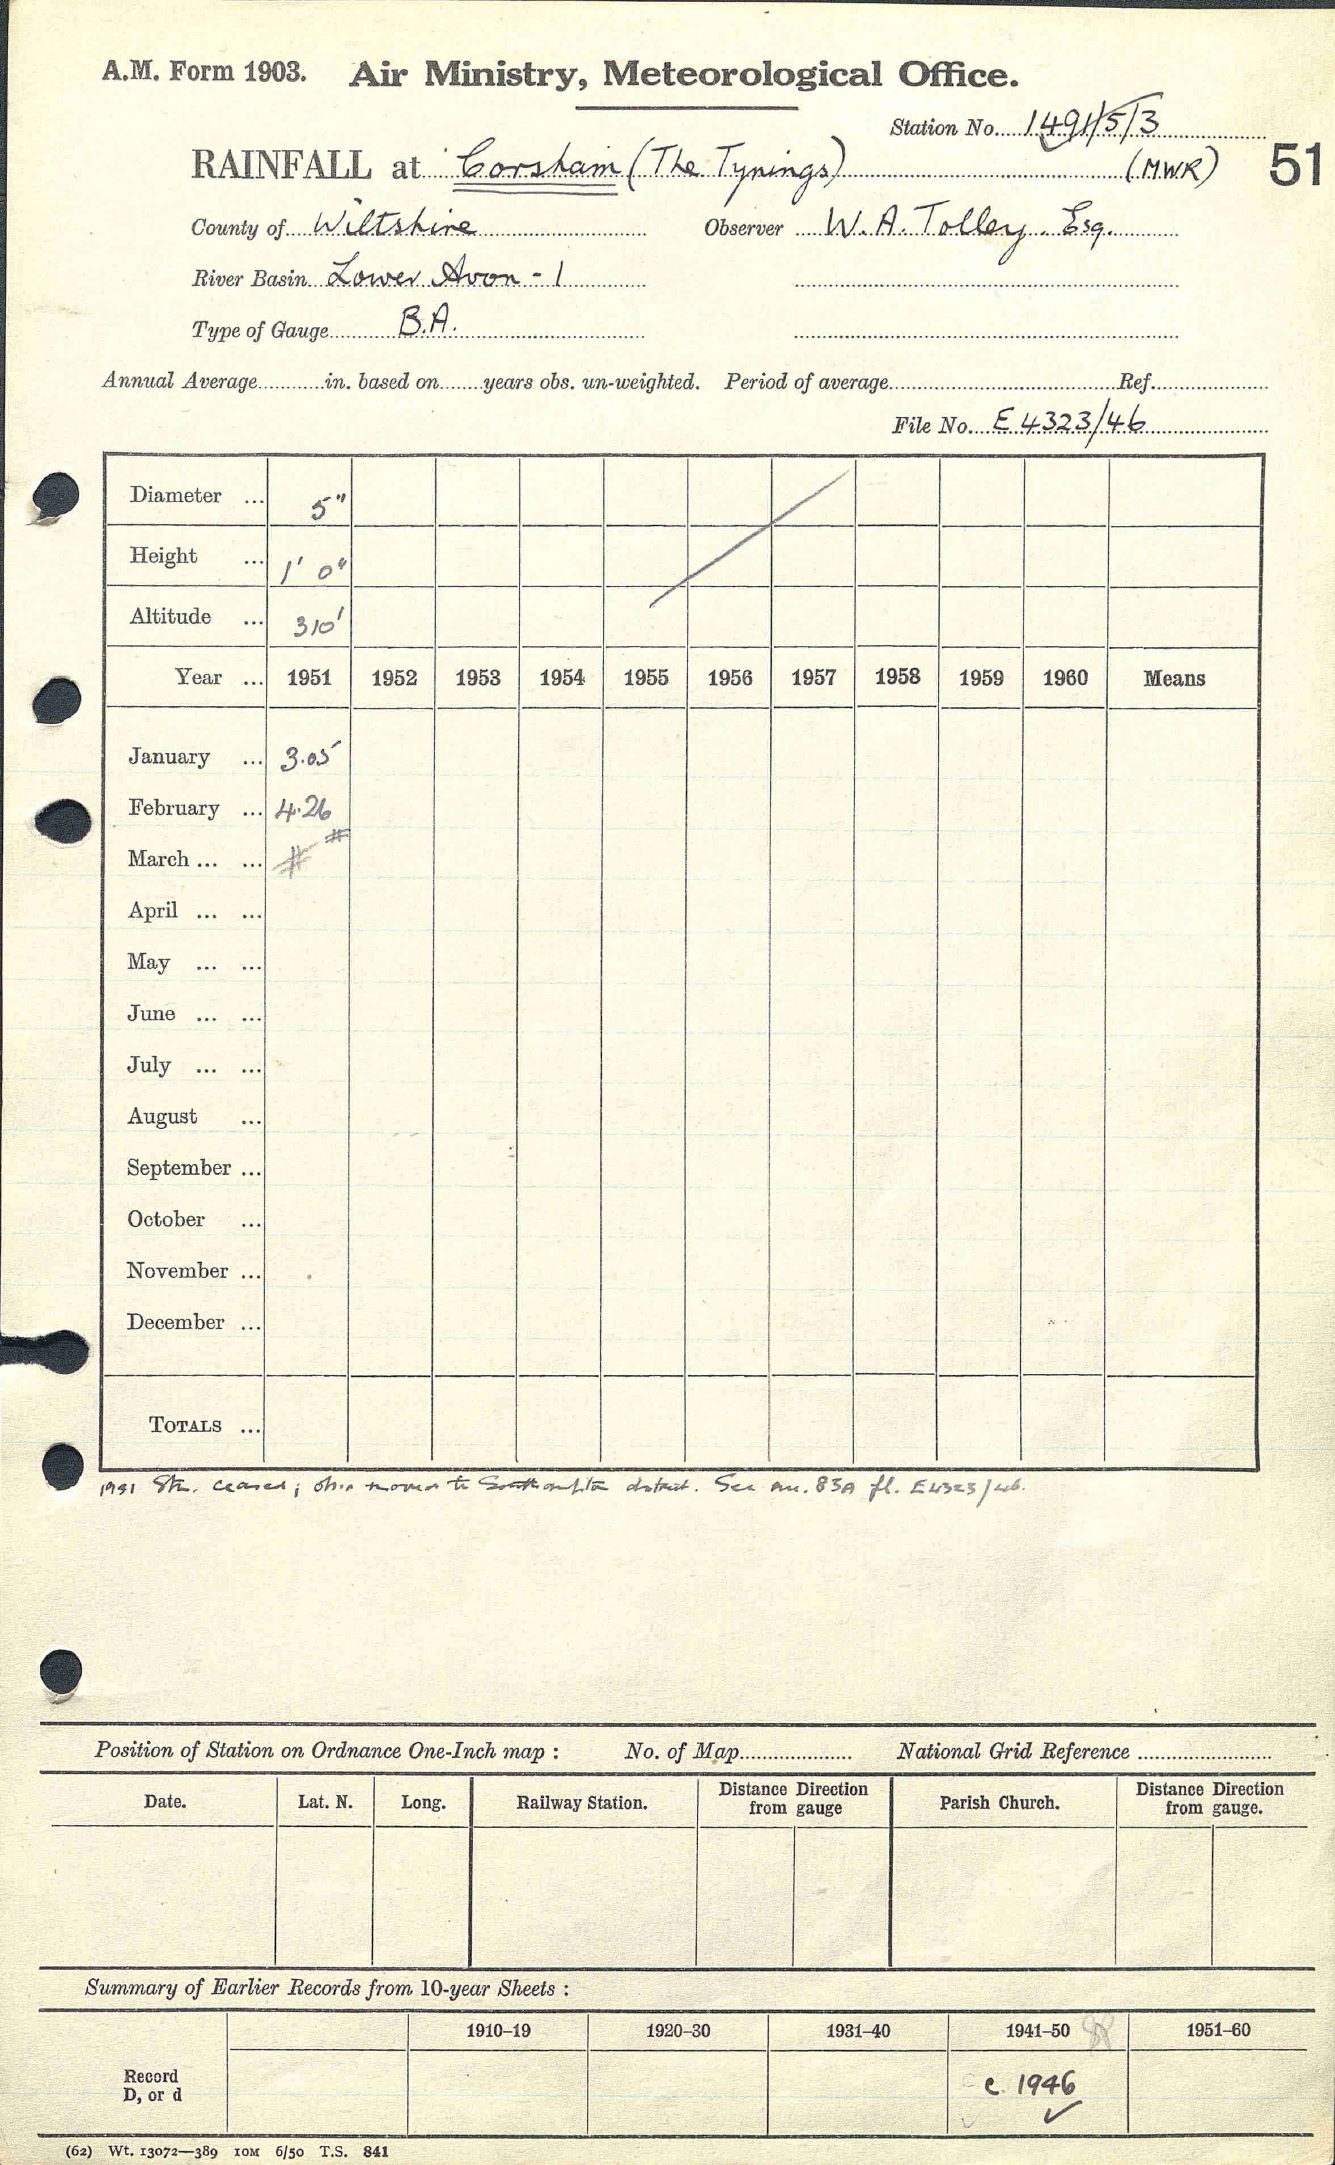 A.M. Form 1903. Air Ministry, Meteorological Office.
Station No. 1491/5/3
RAINFALL at Corsham (The Tynings) (MWR) 51
County of Wiltshire Observer W. A. Tolley. Esq.
River Basin Lower Avon - 1
Type of Gauge B.A.
Annual Average in. based on years obs. un-weighted. Period of average Ref.
File No. E 4323/46
Diameter ... 5"
Height ... 1' 0"
Altitude ... 310'
Year ... 1951 1952 1953 1954 1955 1956 1957 1958 1959 1960 Means
January ... 3.05
February ... 4.26
March ... ... # #
April ... ...
May ... ...
June ... ...
July ... ...
August ...
September ...
October ...
November ...
December ...
TOTALS ...
1951 Stn. ceased; obsr moved to Southampton district. See mn. 83A fl. E4323/46.
Position of Station on Ordnance One-Inch map : No. of Map National Grid Reference
Date. Lat. N. Long. Railway Station. Distance Direction from gauge Parish Church. Distance Direction from gauge.
Summary of Earlier Records from 10-year Sheets :
1910–19 1920–30 1931–40 1941–50 1951–60
Record
D, or d c. 1946 ✓
(62) Wt. 13072—389 10M 6/50 T.S. 841